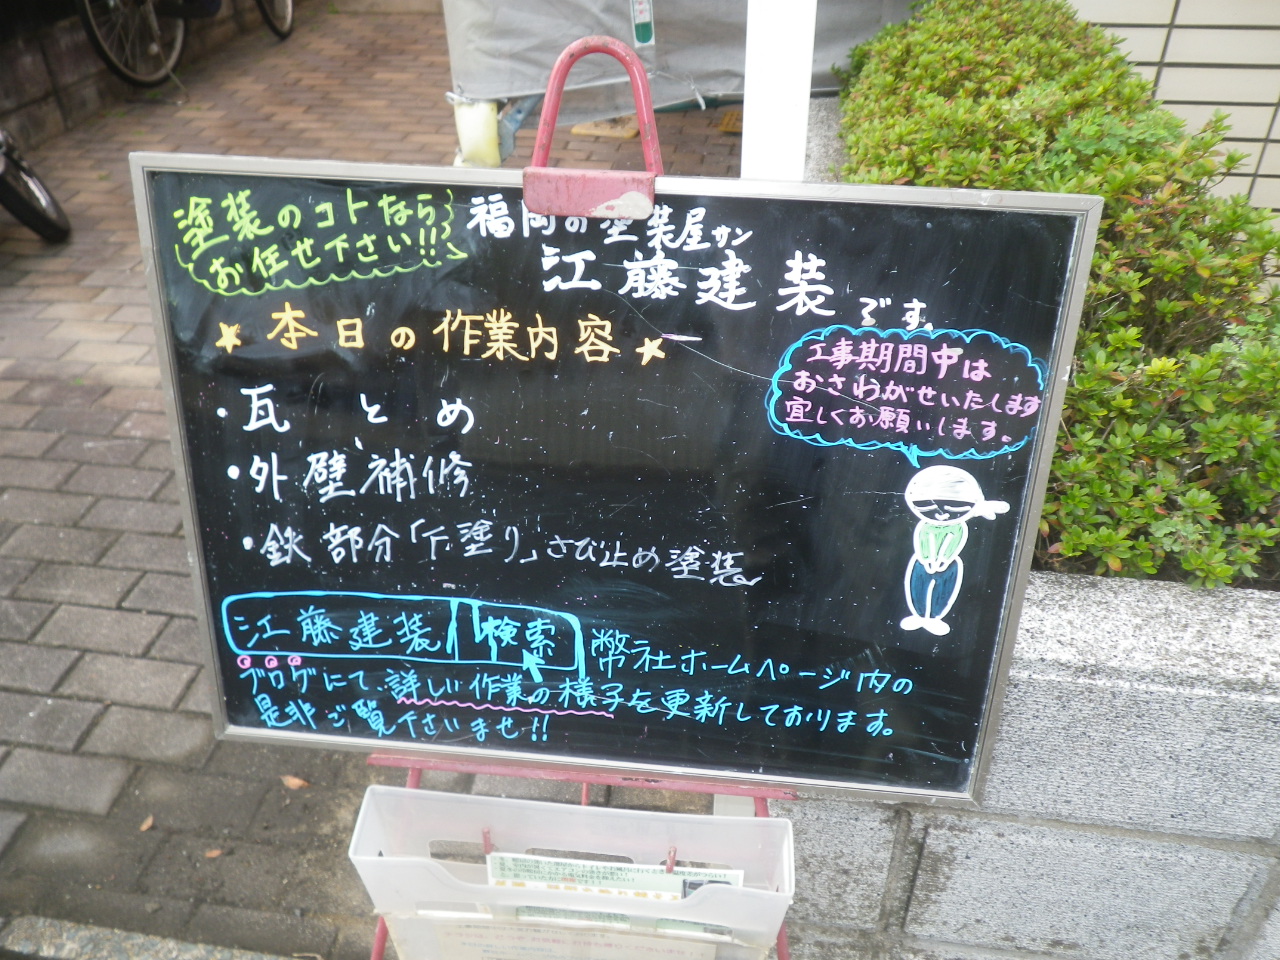 塗装のコトなら
お任せ下さい!!
福岡の塗装屋サン
江藤建装です。
★本日の作業内容★
・瓦とめ
・外壁補修
・鉄部分「下塗り」さび止め塗装
工事期間中は
おさわがせいたします
宜しくお願いします。
江藤建装 検索
弊社ホームページ内の
ブログにて、詳しい作業の様子を更新しております。
是非ご覧下さいませ!!